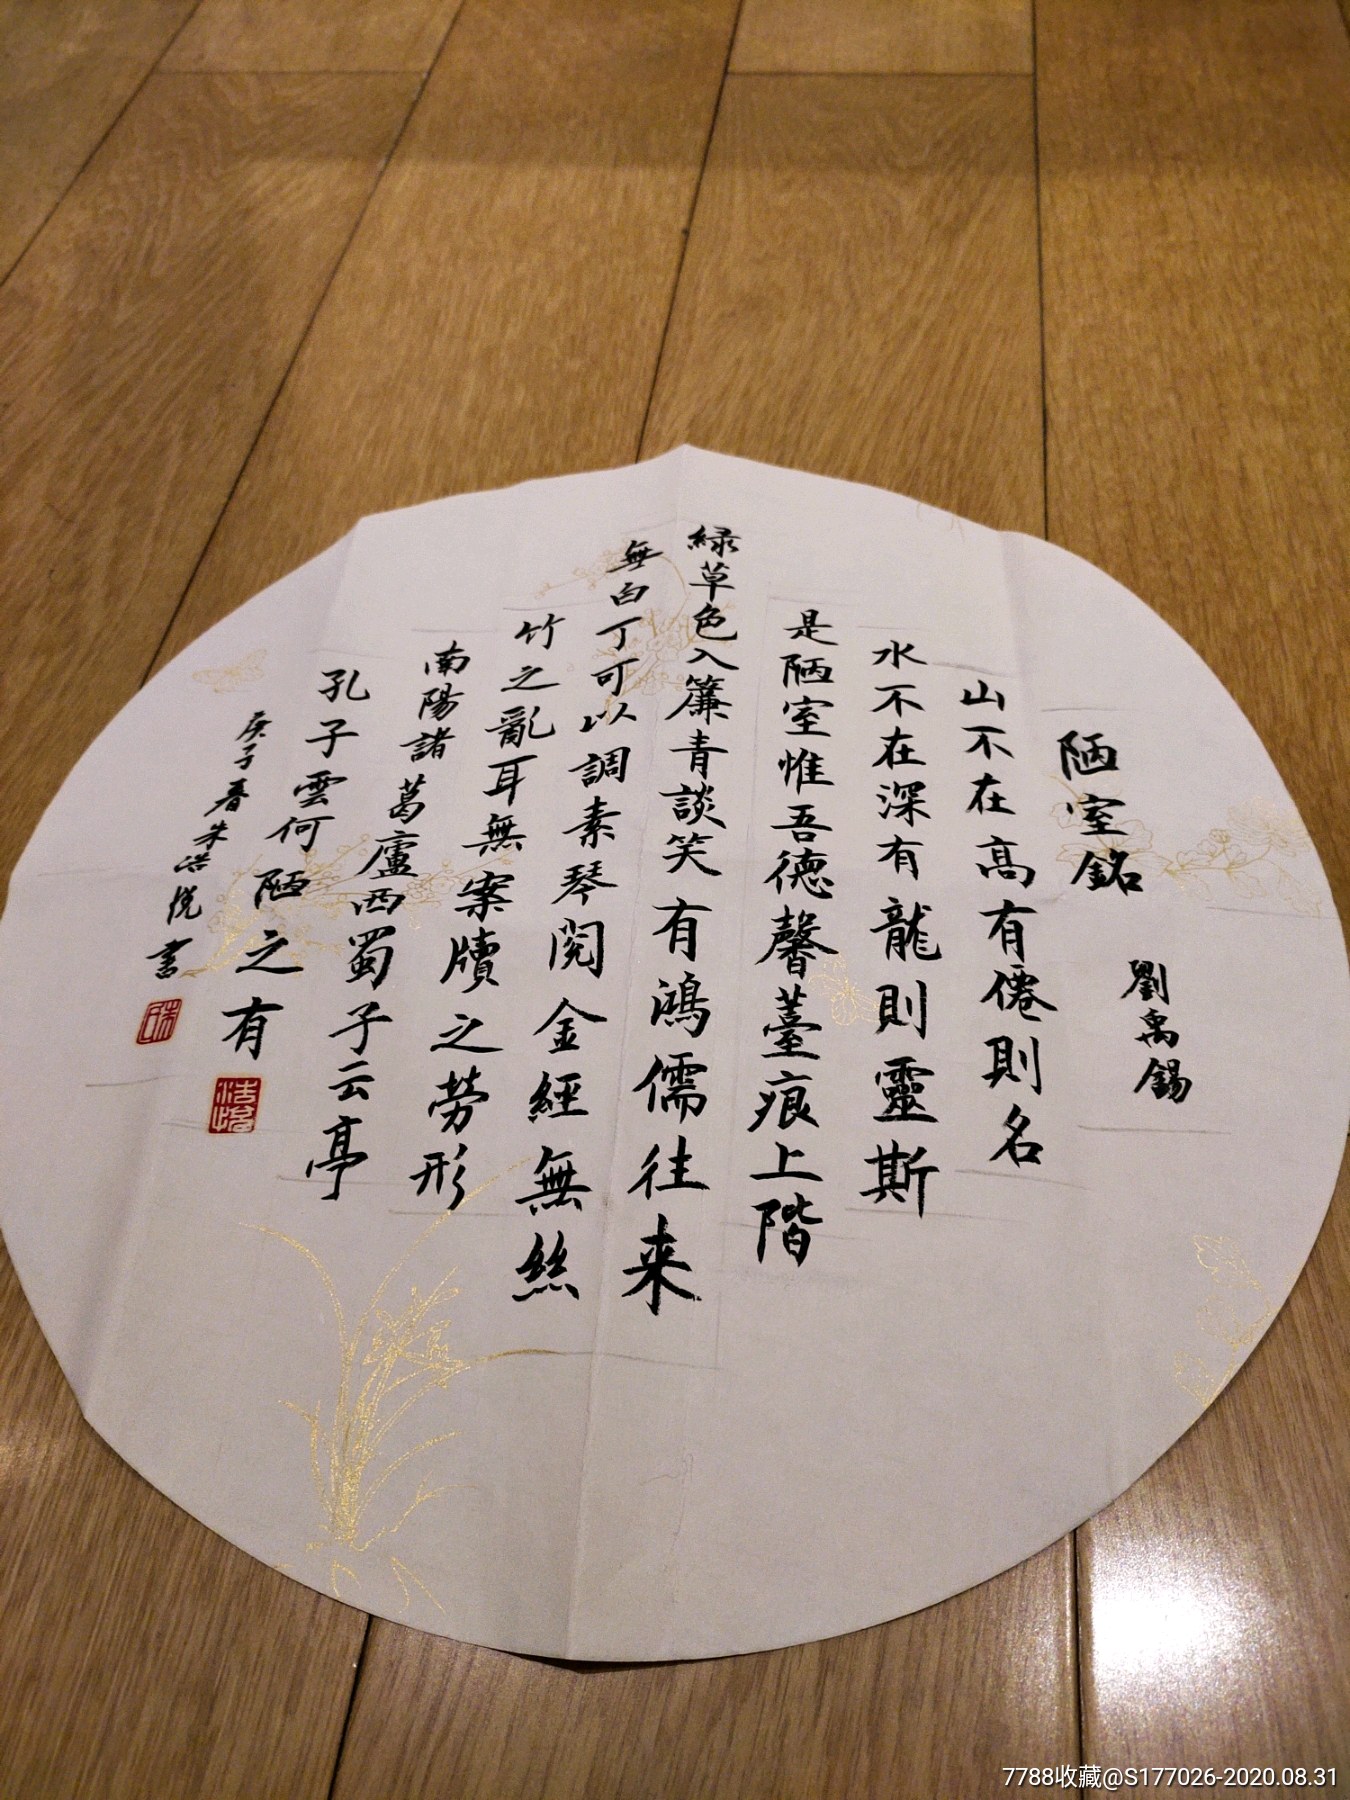 陋室銘 劉禹錫
山不在高有僊則名
水不在深有龍則靈斯
是陋室惟吾德馨薹痕上階
緑草色入簾青談笑有鴻儒往来
無白丁可以調素琴閱金經無絲
竹之亂耳無案牘之劳形
南陽諸葛廬西蜀子云亭
孔子雲何陋之有
庚子春朱浩悦書
朱
浩悦
7788收藏@S177026-2020.08.31